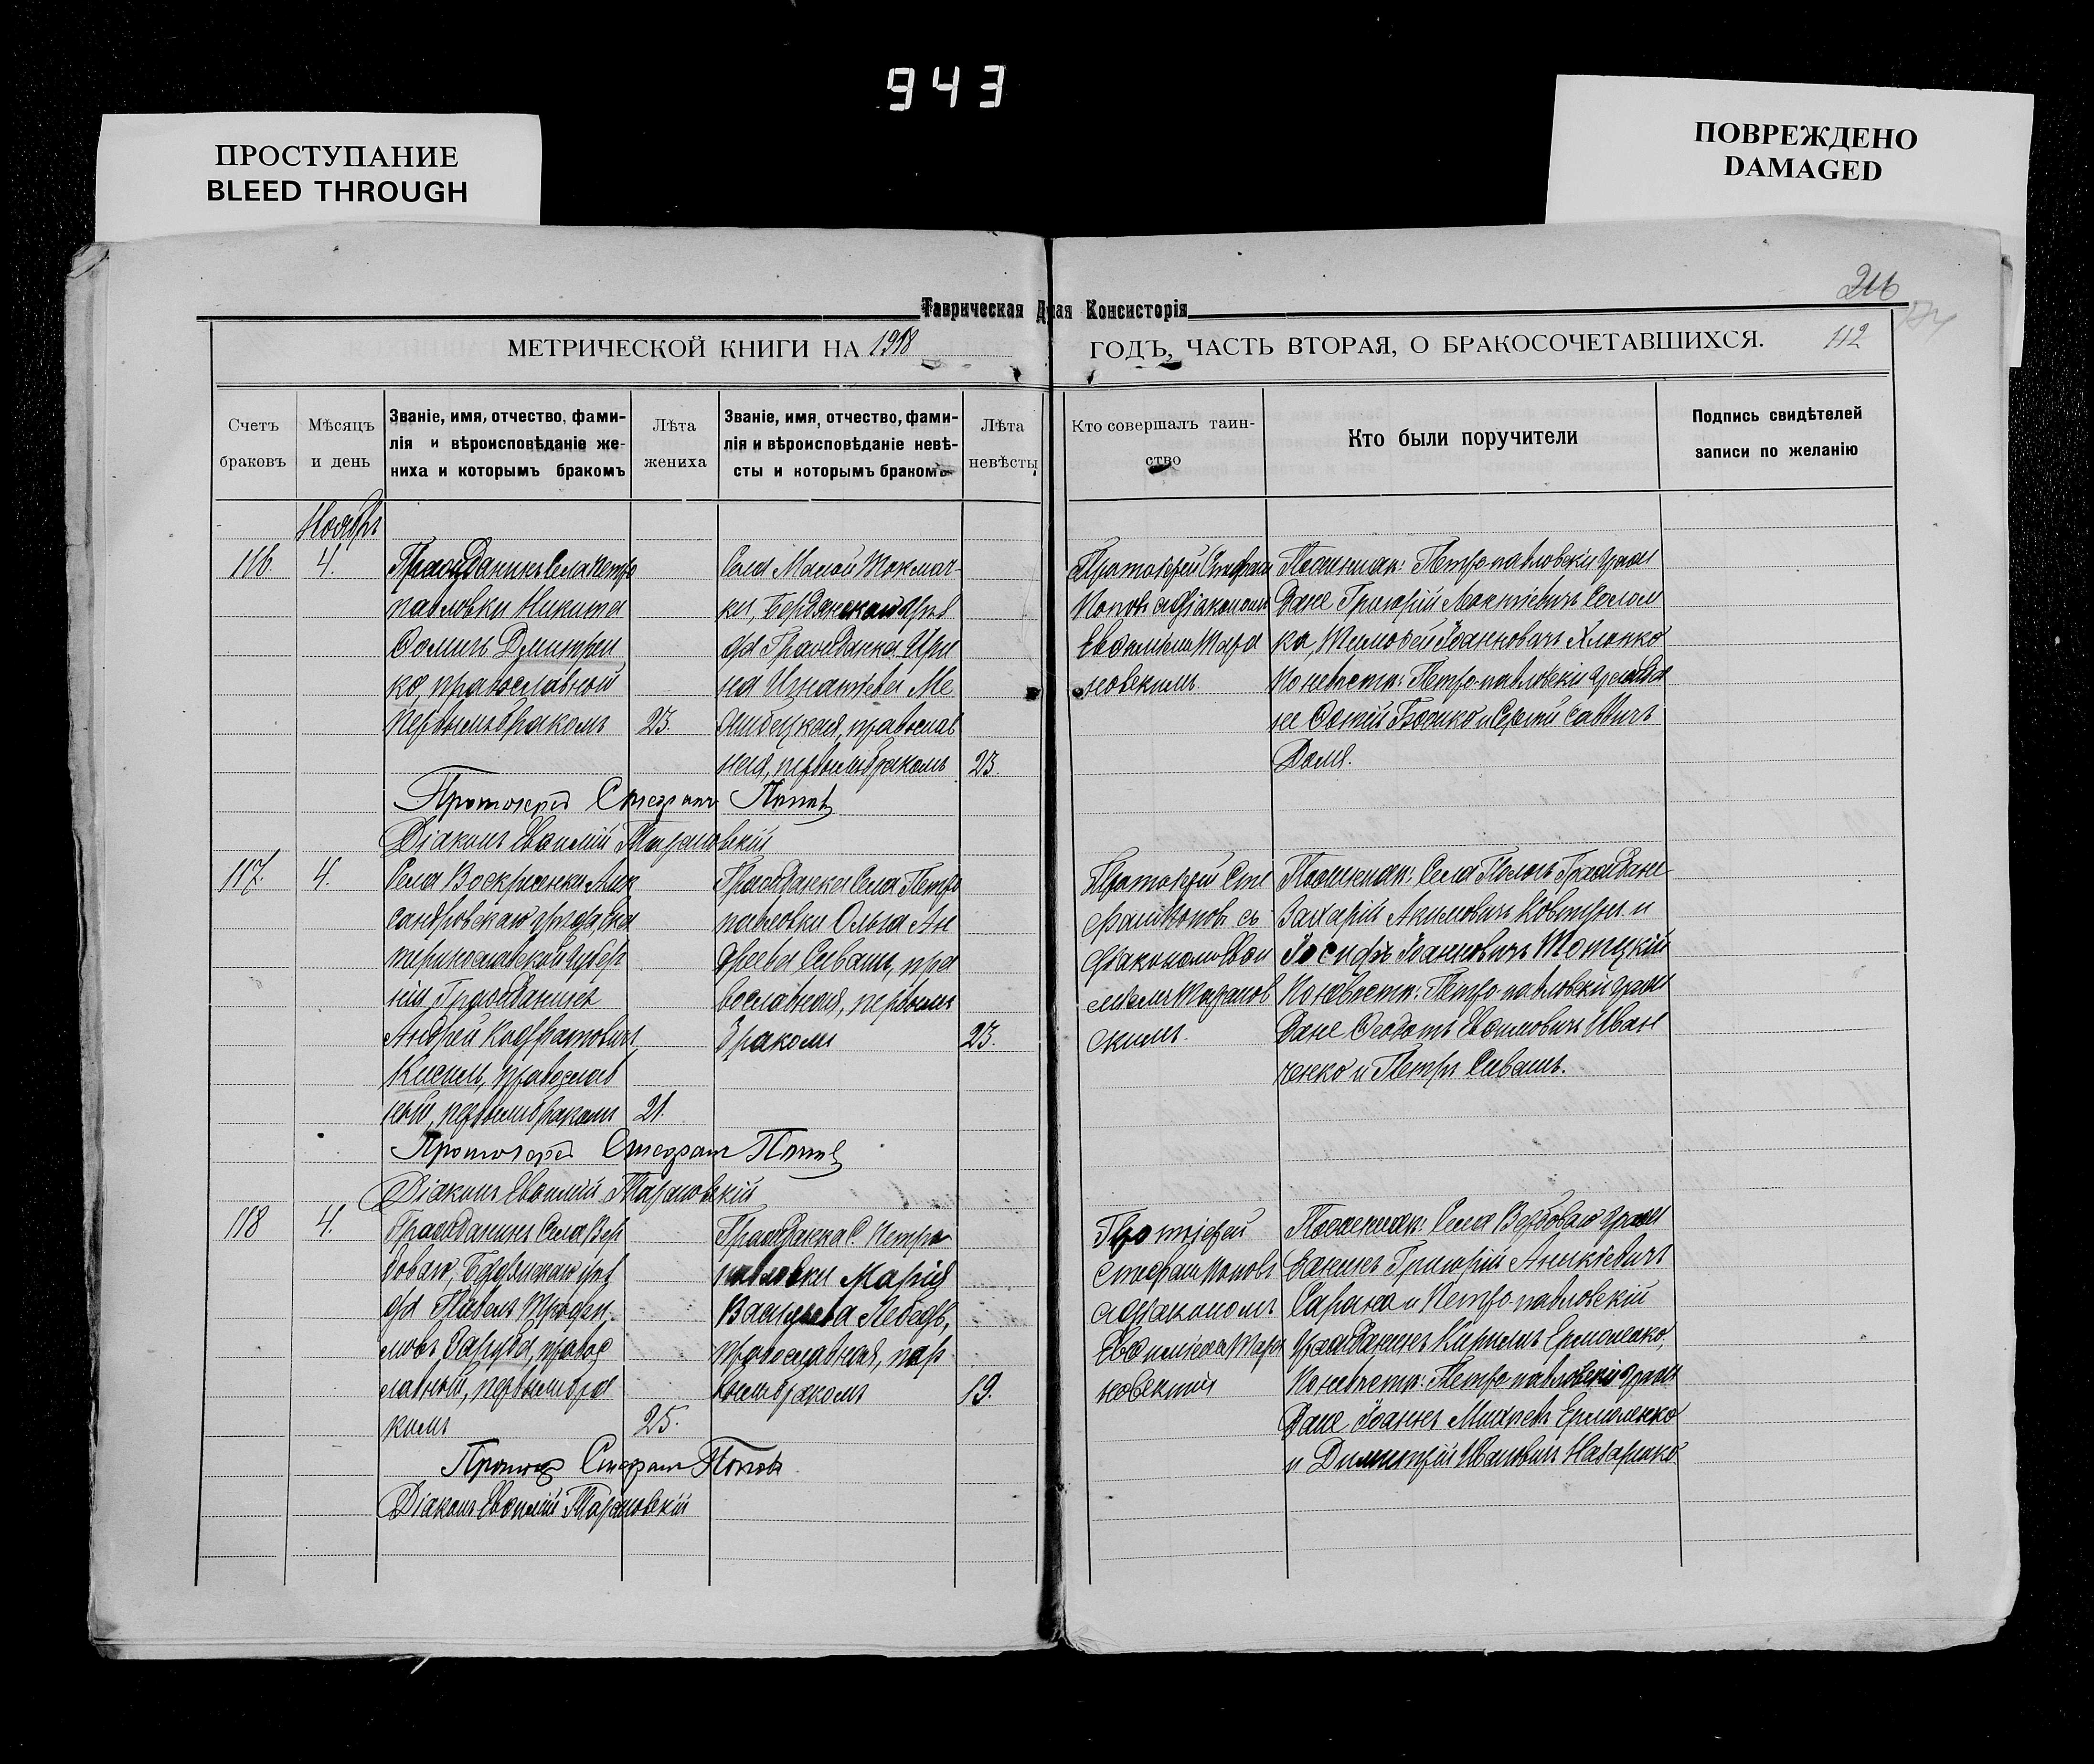 943
ПРОСТУПАНИЕ
BLEED THROUGH
ПОВРЕЖДЕНО
DAMAGED
216
Таврическая Д ная Консисторія
МЕТРИЧЕСКОЙ КНИГИ НА 1918 ГОДЪ, ЧАСТЬ ВТОРАЯ, О БРАКОСОЧЕТАВШИХСЯ. 112
Счетъ
браковъ
Мѣсяцъ
и день
Званіе, имя, отчество, фами-
лія и вѣроисповѣданіе же-
ниха и которымъ бракомъ
Лѣта
жениха
Званіе, имя, отчество, фами-
лія и вѣроисповѣданіе невѣ-
сты и которымъ бракомъ
Лѣта
невѣсты
Кто совершалъ таин-
ство
Кто были поручители
Подпись свидѣтелей
записи по желанію
Ноябрь
116. 4.
Гражданинъ села Петро
павловки Никита
Ѳомичъ Дмитрен
ко, православной
первымъ бракомъ 23.
Села Малой Токмач-
ки, Бердянскаго уѣз
да Гражданка Ири
на Игнатіева Ме
православ
ная, первымъ бракомъ 23.
Протоіерей Стефан
Поповъ с діакономъ
Евѳиміем Тара
новскимъ
По женихѣ: Петро-павловскіе граж
дане Григорій Солом
ка, Тимофей Іоанновичъ Хлопко
По невѣстѣ: Петро-павловскіе гражда
не Бойко и Сергій Саввичъ
Даля.
Протоіерей Стефанъ Поповъ
Діаконъ Евѳимій Тарановскій
117. 4.
Села Воскресенки Алек
сандровскаго уѣзда, Ека
теринославской губер
ніи, Гражданинъ
Андрей Кодратовичъ
Кисель, православ
ный, первымъ бракомъ 21.
Гражданка Села Петро
павловки Ольга Ан
дреева Сиваш, пра
вославная, первымъ
бракомъ 23.
Протоіерей Сте
фан Поповъ съ
діакономъ Евѳи
міемъ Таранов
скимъ.
По женихѣ: Села Пологъ Граждане
Захарій Акимовичъ Ковтун и
Іосифъ Іоанновичъ Тотцкій
По невѣстѣ: Петро-павловскіе граж
дане Ѳеодотъ Евѳимовичъ Иван
ченко и Петръ Сивашъ.
Протоіерей Стефанъ Поповъ
Діаконъ Евѳимій Тарановскій
118 4.
Гражданинъ Села Вер
боваго, Бердянскаго уѣз
да Павелъ Трофи
мовъ правос
лавный, первымъ бра
комъ 25.
Гражданка С. Петро
павловки Марія
Васильева Лебедь,
православная, пер
вымъ бракомъ 19.
Протоіерей
Стефан Поповъ
с діакономъ
Евѳиміем Тара
новскимъ
По женихѣ: Села Вербоваго граж
данинъ Григорій
и Петро-павловскій
гражданинъ Кириллъ Ермоленко,
По невѣстѣ: Петро-павловскіе граж
дане Іоаннъ Михеевъ Ермоленко
и Димитрій Ивановичъ Назаренко
Протоіер Стефанъ Поповъ
Діаконъ Евѳимій Тарановскій